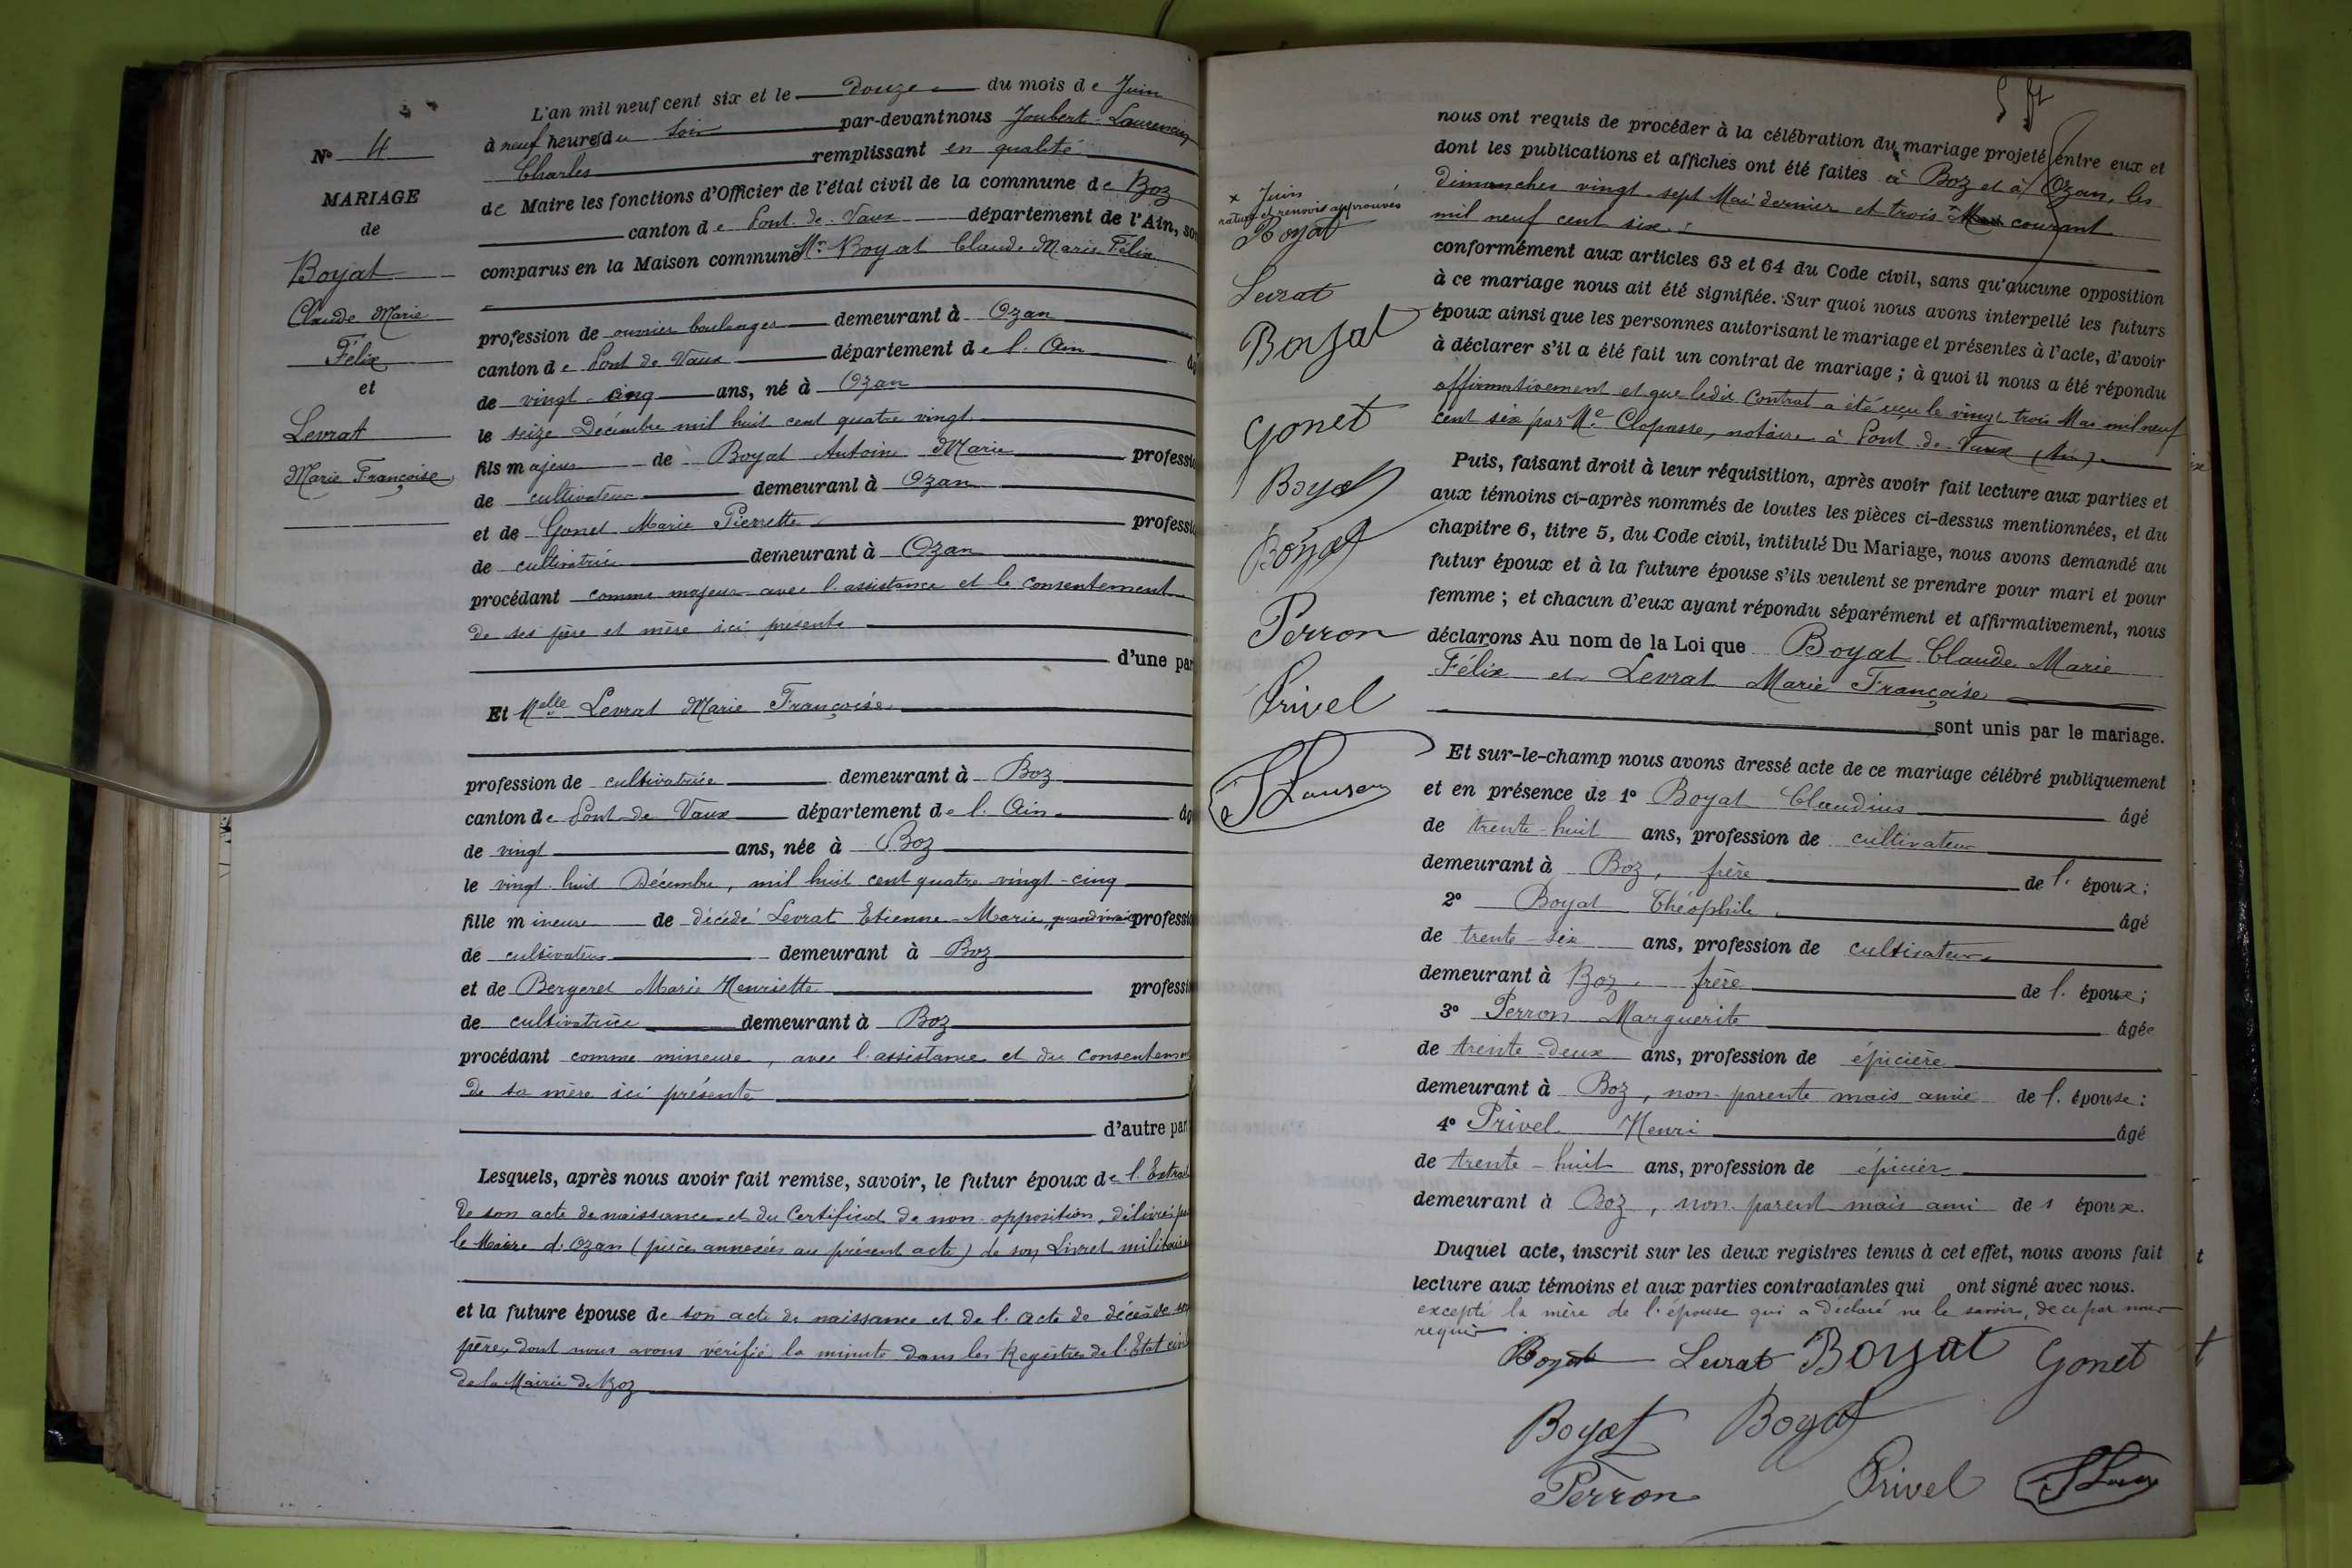 N° 4
MARIAGE
de
Boyat
Claude Marie
Félix
et
Levrat
Marie Françoise
L'an mil neuf cent six et le douze du mois de Juin
à neuf heures du soir par-devant nous Joubert-Laurencin
Charles remplissant en qualité
de Maire les fonctions d'Officier de l'état civil de la commune de Boz
canton de Pont-de-Vaux département de l'Ain, so
comparus en la Maison commune Mr Boyat Claude Marie Félix
profession de ouvrier boulanger demeurant à Ozan
canton de Pont de Vaux département de l'Ain âg
de vingt-cinq ans, né à Ozan
le seize Décembre mil huit cent quatre vingt
fils majeur de Boyat Antoine Marie professi
de cultivateur demeurant à Ozan
et de Gonet Marie Pierrette professi
de cultivatrice demeurant à Ozan
procédant comme majeur avec l'assistance et le consentement
de ses père et mère ici présents
d'une par
Et Melle Levrat Marie Françoise
profession de cultivatrice demeurant à Boz
canton de Pont-de Vaux département de l'Ain âg
de vingt ans, née à Boz
le vingt-huit Décembre, mil huit cent quatre-vingt-cinq
fille mineure de décédé Levrat Etienne-Marie, quand vivait professi
de cultivateur demeurant à Boz
et de Bergeret Marie Henriette professi
de cultivatrice demeurant à Boz
procédant comme mineure, avec l'assistance et du consentement
de sa mère ici présente
d'autre par
Lesquels, après nous avoir fait remise, savoir, le futur époux de l'Extrait
de son acte de naissance et du Certificat de non-opposition, délivrés par
le Maire d'Ozan (pièces annexées au présent acte) de son Livret militaire
et la future épouse de son acte de naissance et de l'acte de décès de son
père, dont nous avons vérifié la minute dans les Registres de l'Etat civil
de la Mairie de Boz
nous ont requis de procéder à la célébration du mariage projeté entre eux et
dont les publications et affiches ont été faites à Boz et à Ozan, les
dimanches vingt-sept Mai dernier et trois x Mai courant
mil neuf cent six.
conformément aux articles 63 et 64 du Code civil, sans qu'aucune opposition
à ce mariage nous ait été signifiée. Sur quoi nous avons interpellé les futurs
époux ainsi que les personnes autorisant le mariage et présentes à l'acte, d'avoir
à déclarer s'il a été fait un contrat de mariage ; à quoi il nous a été répondu
affirmativement et que ledit Contrat a été reçu le vingt trois Mai mil neuf
cent six par Me Clopasse, notaire à Pont-de-Vaux (Ain).
Puis, faisant droit à leur réquisition, après avoir fait lecture aux parties et
aux témoins ci-après nommés de toutes les pièces ci-dessus mentionnées, et du
chapitre 6, titre 5, du Code civil, intitulé Du Mariage, nous avons demandé au
futur époux et à la future épouse s'ils veulent se prendre pour mari et pour
femme ; et chacun d'eux ayant répondu séparément et affirmativement, nous
déclarons Au nom de la Loi que Boyat Claude Marie
Félix et Levrat Marie Françoise
sont unis par le mariage.
Et sur-le-champ nous avons dressé acte de ce mariage célébré publiquement
et en présence de 1° Boyat Claudius âgé
de trente-huit ans, profession de cultivateur
demeurant à Boz, frère de l'époux;
2° Boyat Théophile âgé
de trente-six ans, profession de cultivateur
demeurant à Boz frère de l'époux;
3° Perron Marguerite âgée
de trente-deux ans, profession de épicière
demeurant à Boz, non parente mais amie de l'épouse:
4° Privel Henri âgé
de trente-huit ans, profession de épicier
demeurant à Boz, non parent mais ami de l époux.
Duquel acte, inscrit sur les deux registres tenus à cet effet, nous avons fait
lecture aux témoins et aux parties contractantes qui ont signé avec nous.
excepté la mère de l'épouse qui a déclaré ne le savoir, de ce par nous
requis
Boyat Levrat Boyat Gonet
Boyat Boyat
Perron Privel
x Juin
rature et renvoi approuvés
Boyat
Levrat
Boyat
Gonet
Boyat
Boyat
Perron
Privel